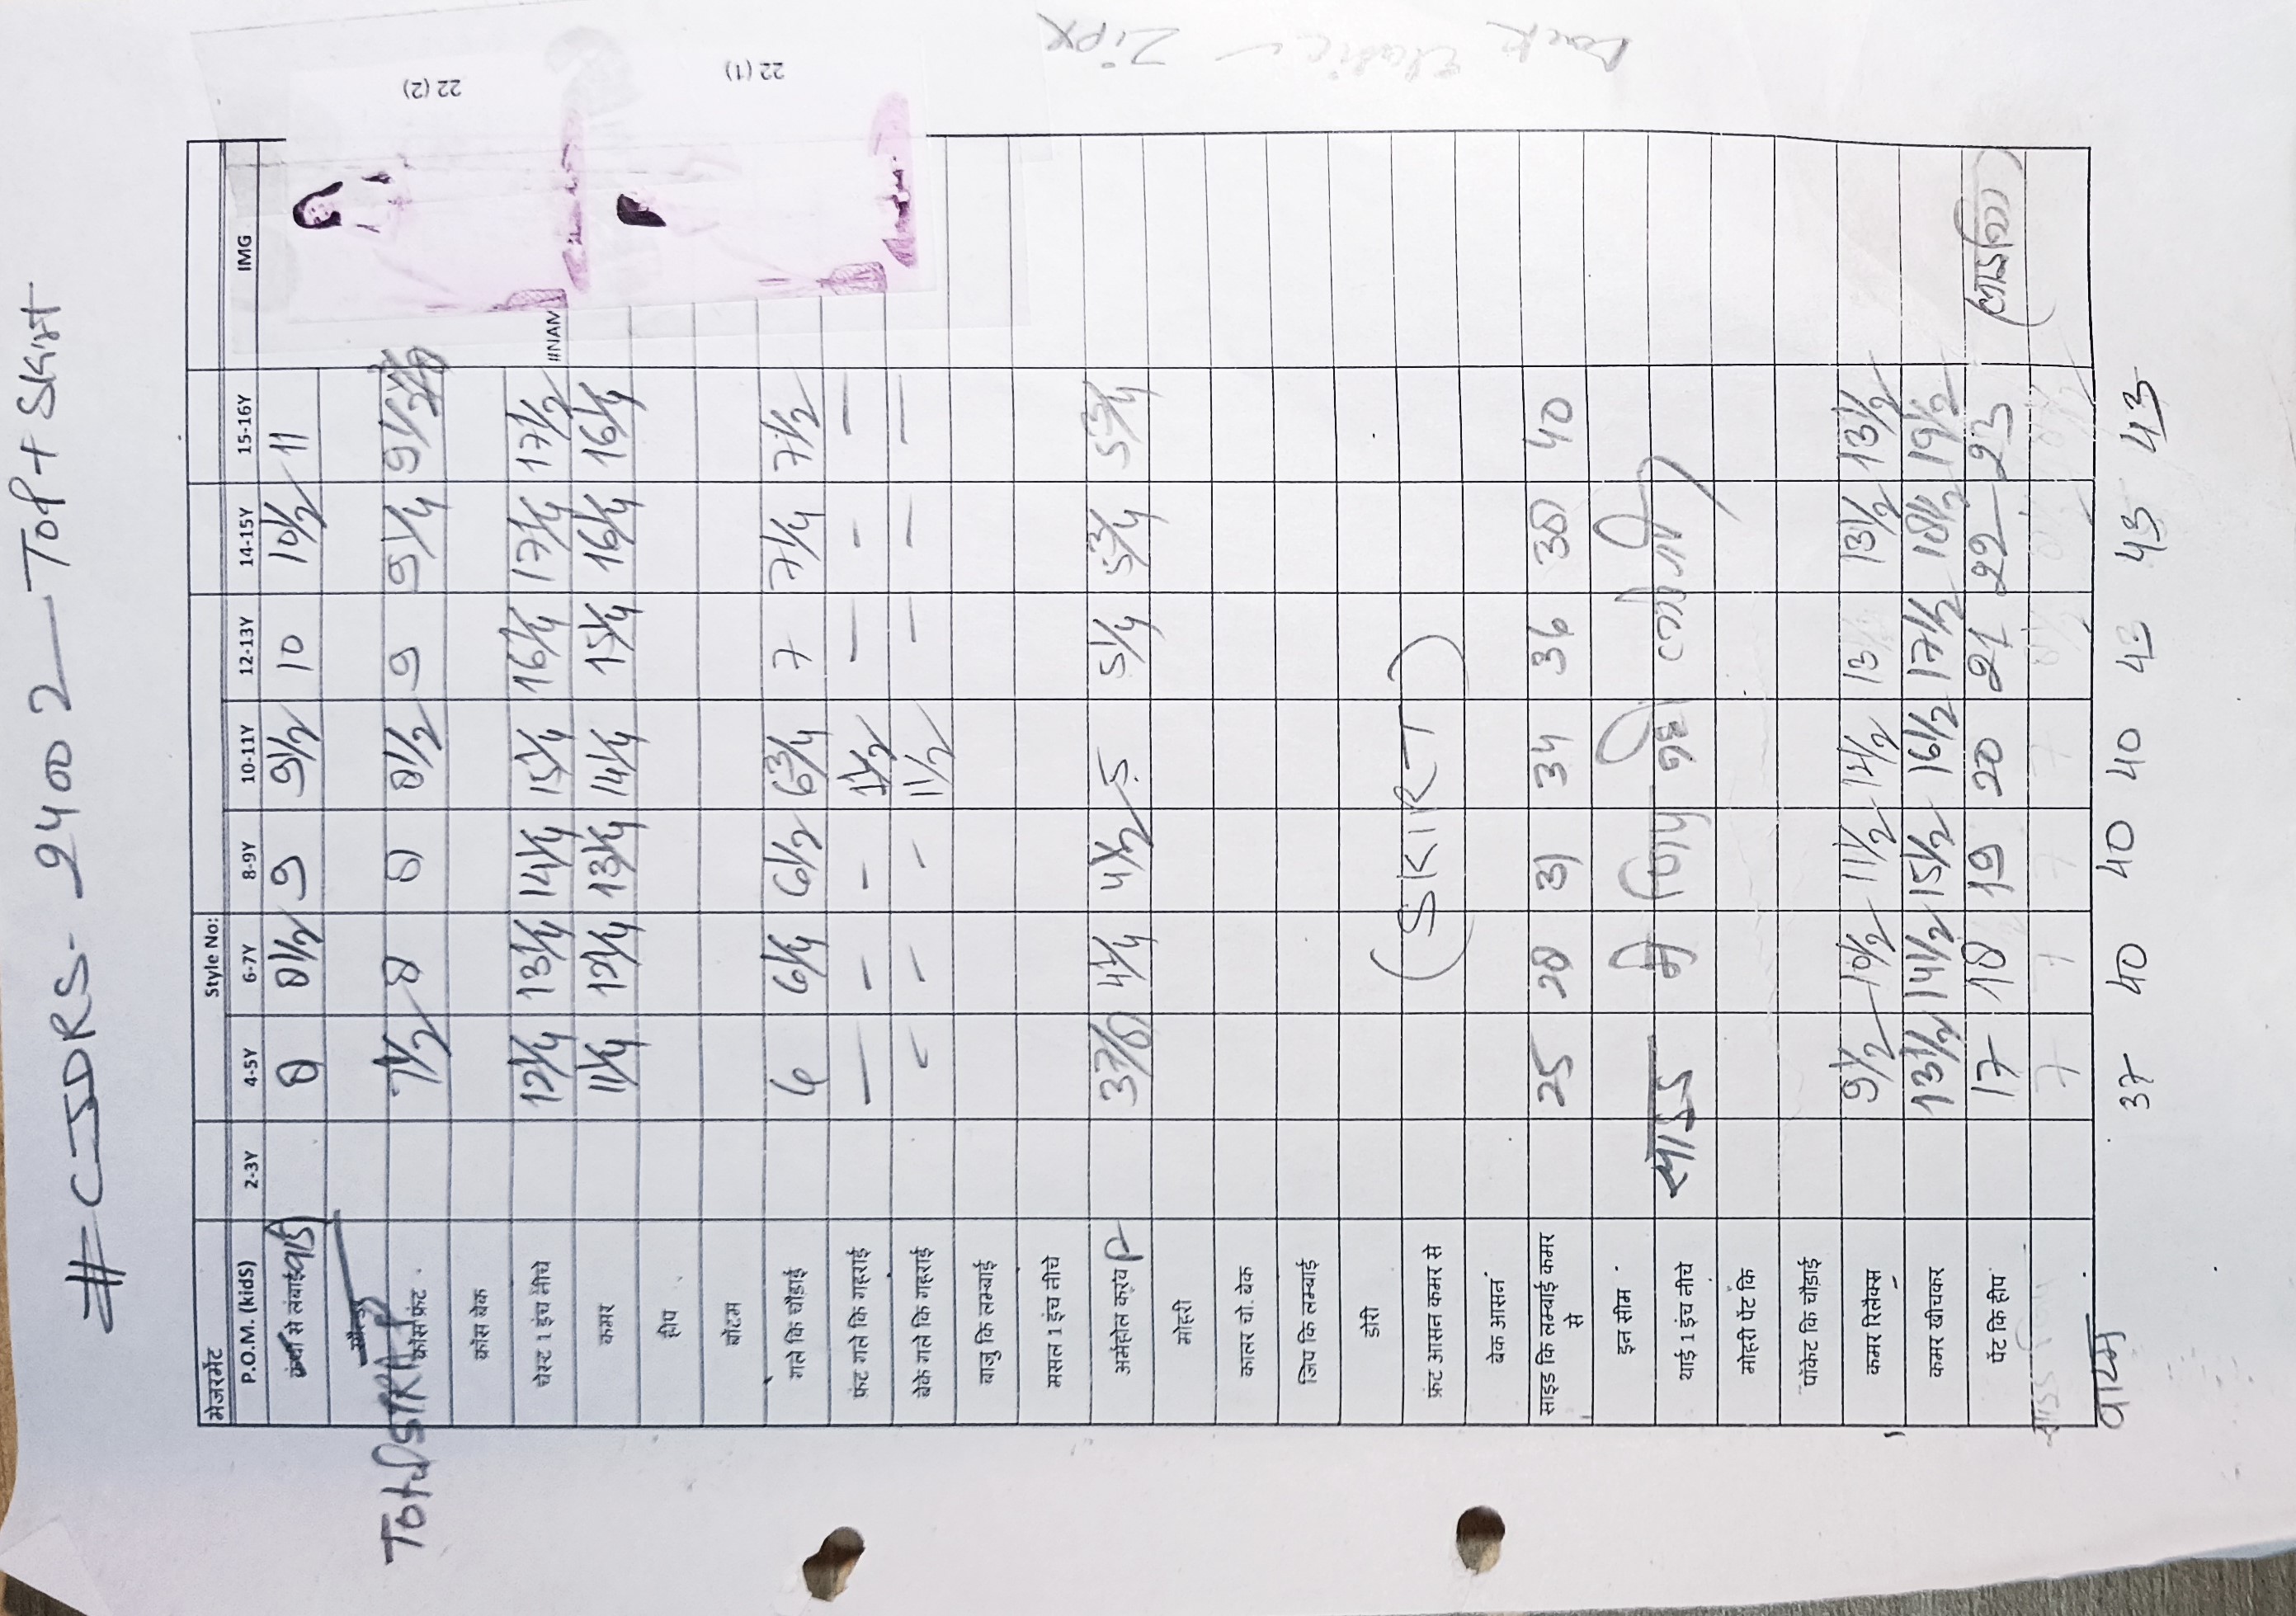 # CJDRS- 9400 2 — TOP + Skirt
मेजरमेंट Style No:
P.O.M. (kidS) 2-3Y 4-5Y 6-7Y 8-9Y 10-11Y 12-13Y 14-15Y 15-16Y IMG
से लंबाई 8 8 1/2 9 9 1/2 10 10 1/2 11
STRAP
क्रॉस फ्रंट 7 1/2 8 8 8 1/2 9 9 1/4 9 1/2
क्रॉस बेक
चेस्ट 1 इंच नीचे 12 1/4 13 1/4 14 1/4 15 1/4 16 1/4 17 1/4 17 1/2 #NAM
कमर 11 1/4 12 1/4 13 1/4 14 1/4 15 1/4 16 1/4 16 1/4
हीप
बॉटम
गले कि चौड़ाई 6 6 1/4 6 1/2 6 3/4 7 7 1/4 7 1/2
फ्रंट गले कि गहराई — - - 1 1/2 — - —
बेके गले कि गहराई - - - 1 1/2 — — —
बाजु कि लम्बाई
मसल 1 इंच नीचे
अर्महोल कर्व P 3 7/8 4 1/4 4 1/2 5 5 1/4 5 3/4 5 3/4
मोहरी
कालर चो. बेक
जिप कि लम्बाई
डोरी
फ्रंट आसन कमर से (SKIRT)
बेक आसन
साइड कि लम्बाई कमर से 25 28 31 34 36 38 40
इन सीम
थाई 1 इंच नीचे साइड मे जिप नही लगेगी
मोहरी पेंट कि
पॉकेट कि चौड़ाई
कमर रिलैक्स 9 1/2 10 1/2 11 1/2 12 1/2 13 13 1/2 13 1/2
कमर खीचकर 13 1/2 14 1/2 15 1/2 16 1/2 17 1/2 18 1/2 19 1/2
पेंट कि हीप 17 18 19 20 21 22 23
7 7 7 7
37 40 40 40 43 43 43
22 (2)
22 (1)
Back Elastic - Zip X